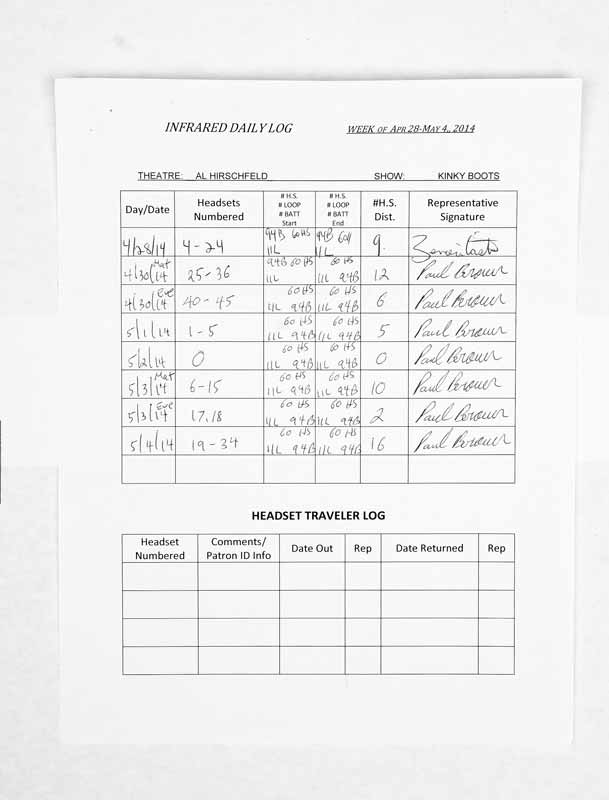 INFRARED DAILY LOG WEEK OF APR 28-MAY 4,, 2014
THEATRE: AL HIRSCHFELD SHOW: KINKY BOOTS
Day/Date Headsets Numbered # H.S. # LOOP # BATT Start # H.S. # LOOP # BATT End #H.S. Dist. Representative Signature
4/28/14 4-24 94B 60 HS 11L 94B 60H 11L 9.
4/30/14 Mat 25-36 94B 60 HS 11L 60 HS 11L 94B 12 Paul Brower
4/30/14 Eve 40-45 60 HS 11L 94B 60 HS 11L 94B 6 Paul Brower
5/1/14 1-5 60 HS 11L 94B 60 HS 11L 94B 5 Paul Brower
5/2/14 0 60 HS 11L 94B 60 HS 11L 94B 0 Paul Brower
5/3/14 Mat 6-15 60 HS 11L 94B 60 HS 11L 94B 10 Paul Brower
5/3/14 Eve 17,18 60 HS 11L 94B 60 HS 11L 94B 2 Paul Brower
5/4/14 19-34 60 HS 11L 94B 60 HS 11L 94B 16 Paul Brower
HEADSET TRAVELER LOG
Headset Numbered Comments/ Patron ID Info Date Out Rep Date Returned Rep